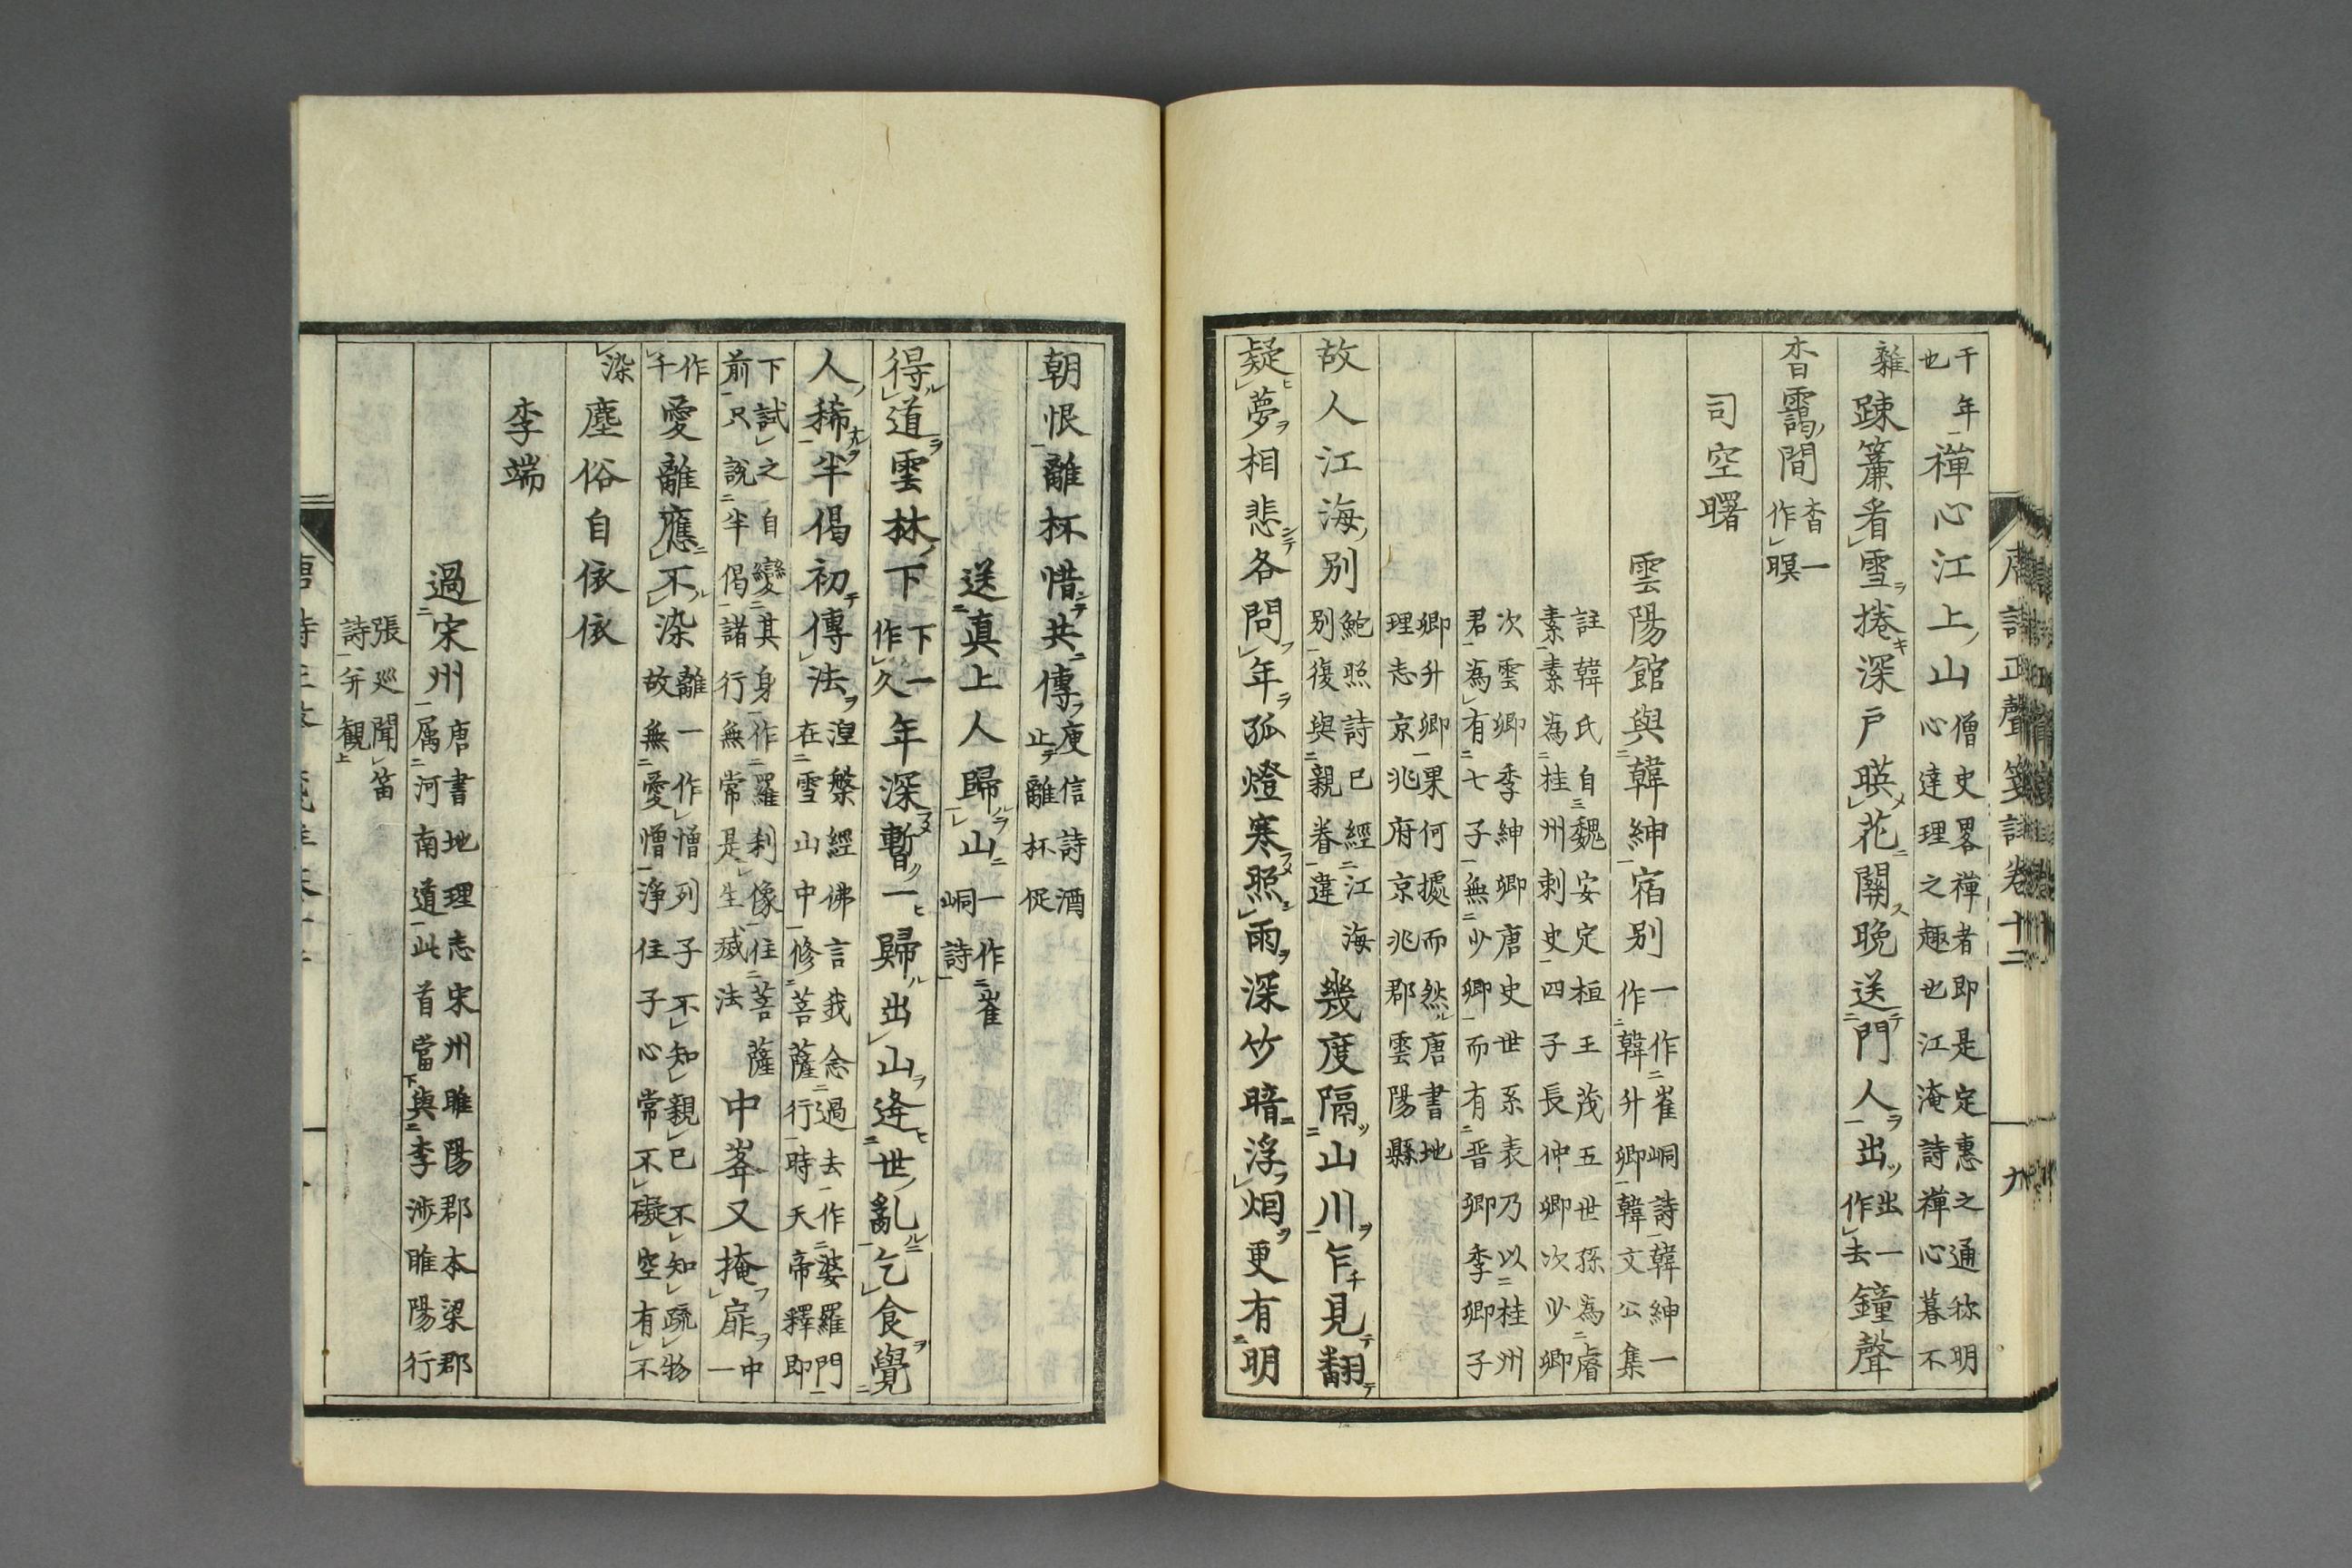 千年
也
禪心江上山
僧史畧禪者即是定惠之通称明
心達理之趣也江淹詩禪心暮不
雜
踈簾看雪捲深戸映花關晩送門人出
出一
作去
鐘聲
杳靄間
杳一
作暝
司空曙
雲陽館與韓紳宿别
一作崔峒詩韓紳一
作韓升卿韓文公集
註韓氏自魏安定桓王茂五世孫為睿
素素為桂州刺史四子長仲卿次少卿
次雲卿季紳卿唐史世系表乃以桂州
君為有七子無少卿而有晋卿李卿子
卿升卿果何據而然唐書地
理志京兆府京兆郡雲陽縣
故人江海别
鮑照詩已經江海
别復與親眷違
幾度隔山川乍見翻
疑夢相悲各問年孤燈寒照雨深竹暗浮烟更有明
唐詩正聲箋註卷十二
九
朝恨離杯惜共傳
庾信詩酒
止離杯促
送真上人歸山
一作崔
峒詩
得道雲林下
下一
作久
年深暫一歸出山逢世亂乞食覺
人稀半偈初傳法
涅槃經佛言我念過去作婆羅門
在雪山中修菩薩行時天帝釋即
下試之自變其身作羅刹像住菩薩
前只說半偈諸行無常是生㓕法
中峯又掩扉
中一
作千
愛離應不染
離一作憎列子不知親已不知疏物
故無愛憎淨住子心常不礙空有不
染
塵俗自依依
李端
過宋州
唐書地理志宋州睢陽郡本梁郡
属河南道此首當與李涉睢陽行
張廵聞笛
詩并観